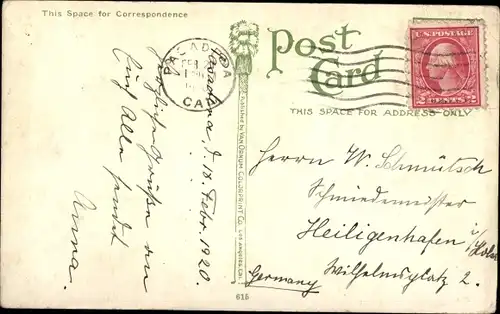 This Space for Correspondence
Post
Card
THIS SPACE FOR ADDRESS ONLY
PASADENA
FEB
CAL
U.S. POSTAGE
2 CENTS 2
Pasadena, d. 18. Febr. 1920.
Herzliche Grüße an
Euch Alle sendet
Anna.
Published by VAN ORNUM COLORPRINT CO. LOS ANGELES, CAL.
Herrn W. Schmütsch
Schmiedemeister
Heiligenhafen i/Holst
Wilhelmsplatz 2.
Germany
615